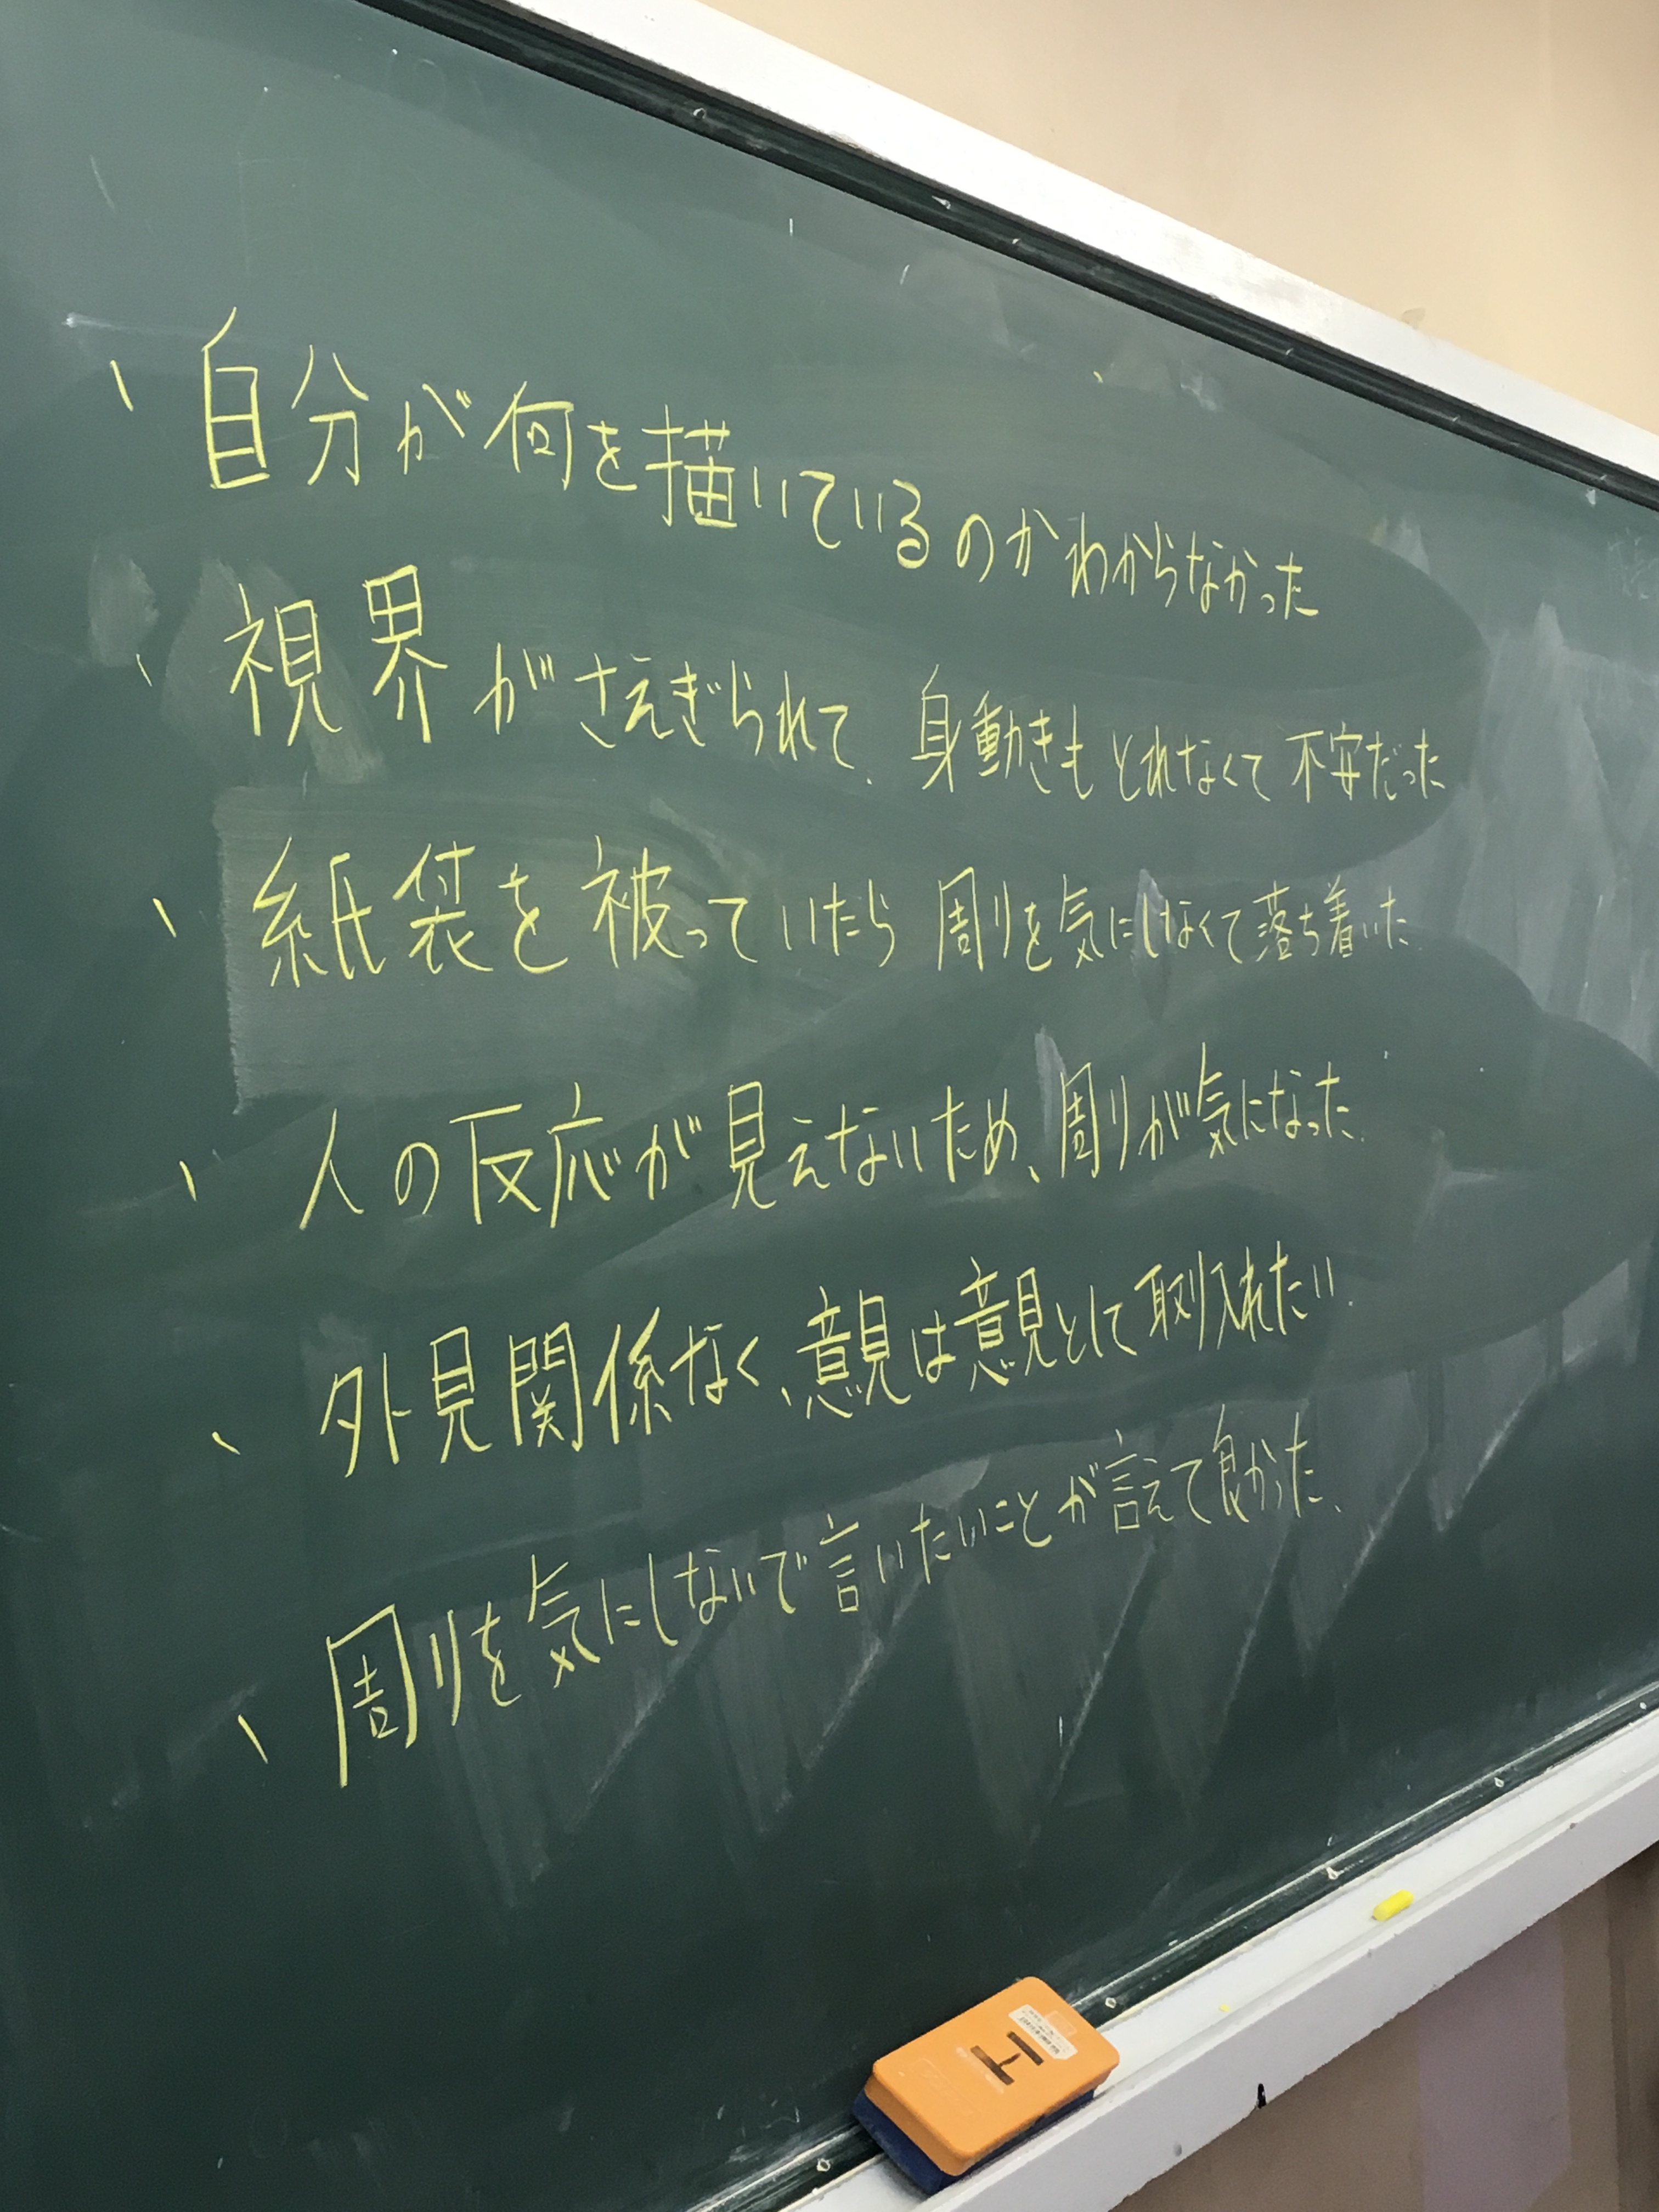 、自分が何を描いているのかわからなかった
、視界がさえぎられて、身動きもとれなくて不安だった
、紙袋を被っていたら周りを気にしなくて落ち着いた
、人の反応が見えないため、周りが気になった
、外見関係なく、意見は意見として取り入れたい
、周りを気にしないで言いたいことが言えて良かった、
エ